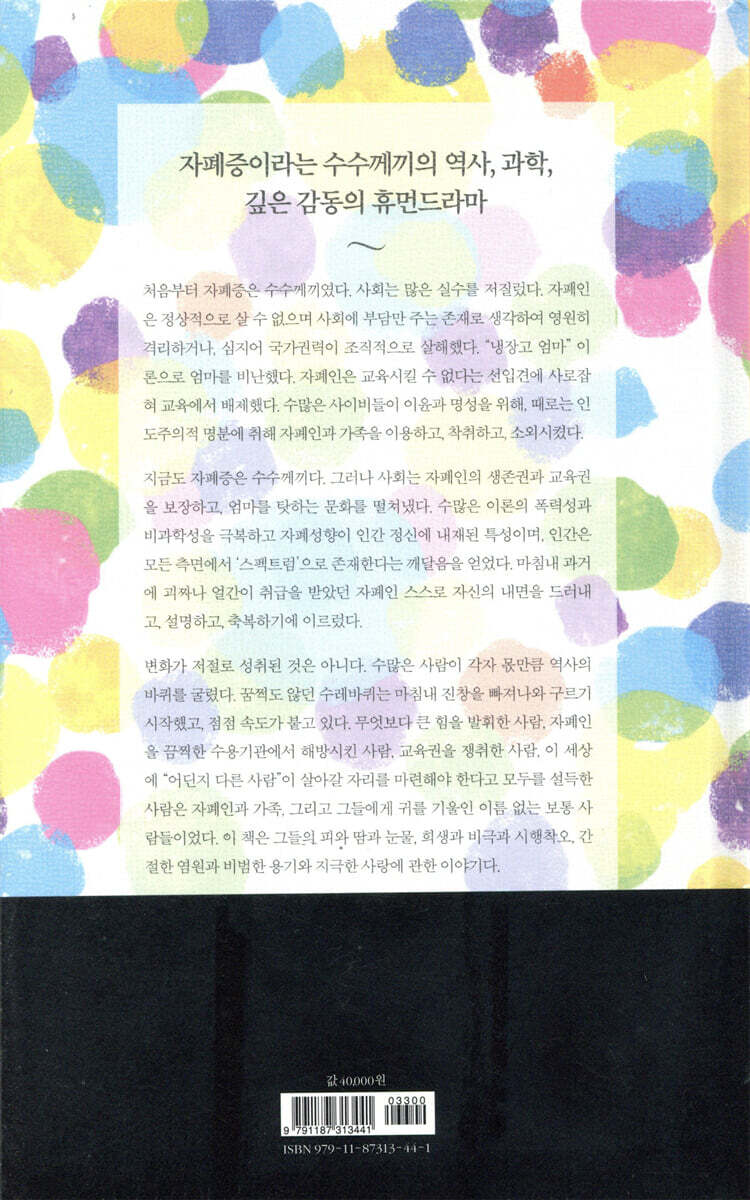 자폐증이라는 수수께끼의 역사, 과학,
깊은 감동의 휴먼드라마
~
처음부터 자폐증은 수수께끼였다. 사회는 많은 실수를 저질렀다. 자폐인
은 정상적으로 살 수 없으며 사회에 부담만 주는 존재로 생각하여 영원히
격리하거나, 심지어 국가권력이 조직적으로 살해했다. “냉장고 엄마” 이
론으로 엄마를 비난했다. 자폐인은 교육시킬 수 없다는 선입견에 사로잡
혀 교육에서 배제했다. 수많은 사이비들이 이윤과 명성을 위해, 때로는 인
도주의적 명분에 취해 자폐인과 가족을 이용하고, 착취하고, 소외시켰다.
지금도 자폐증은 수수께끼다. 그러나 사회는 자폐인의 생존권과 교육권
을 보장하고, 엄마를 탓하는 문화를 떨쳐냈다. 수많은 이론의 폭력성과
비과학성을 극복하고 자폐성향이 인간 정신에 내재된 특성이며, 인간은
모든 측면에서 ‘스펙트럼’으로 존재한다는 깨달음을 얻었다. 마침내 과거
에 괴짜나 얼간이 취급을 받았던 자폐인 스스로 자신의 내면을 드러내
고, 설명하고, 축복하기에 이르렀다.
변화가 저절로 성취된 것은 아니다. 수많은 사람이 각자 몫만큼 역사의
바퀴를 굴렸다. 꿈쩍도 않던 수레바퀴는 마침내 진창을 빠져나와 구르기
시작했고, 점점 속도가 붙고 있다. 무엇보다 큰 힘을 발휘한 사람, 자폐인
을 끔찍한 수용기관에서 해방시킨 사람, 교육권을 쟁취한 사람, 이 세상
에 “어딘지 다른 사람”이 살아갈 자리를 마련해야 한다고 모두를 설득한
사람은 자폐인과 가족, 그리고 그들에게 귀를 기울인 이름 없는 보통 사
람들이었다. 이 책은 그들의 피와 땀과 눈물, 희생과 비극과 시행착오, 간
절한 염원과 비범한 용기와 지극한 사랑에 관한 이야기다.
값 40,000원
03300
9 791187 313441
ISBN 979-11-87313-44-1